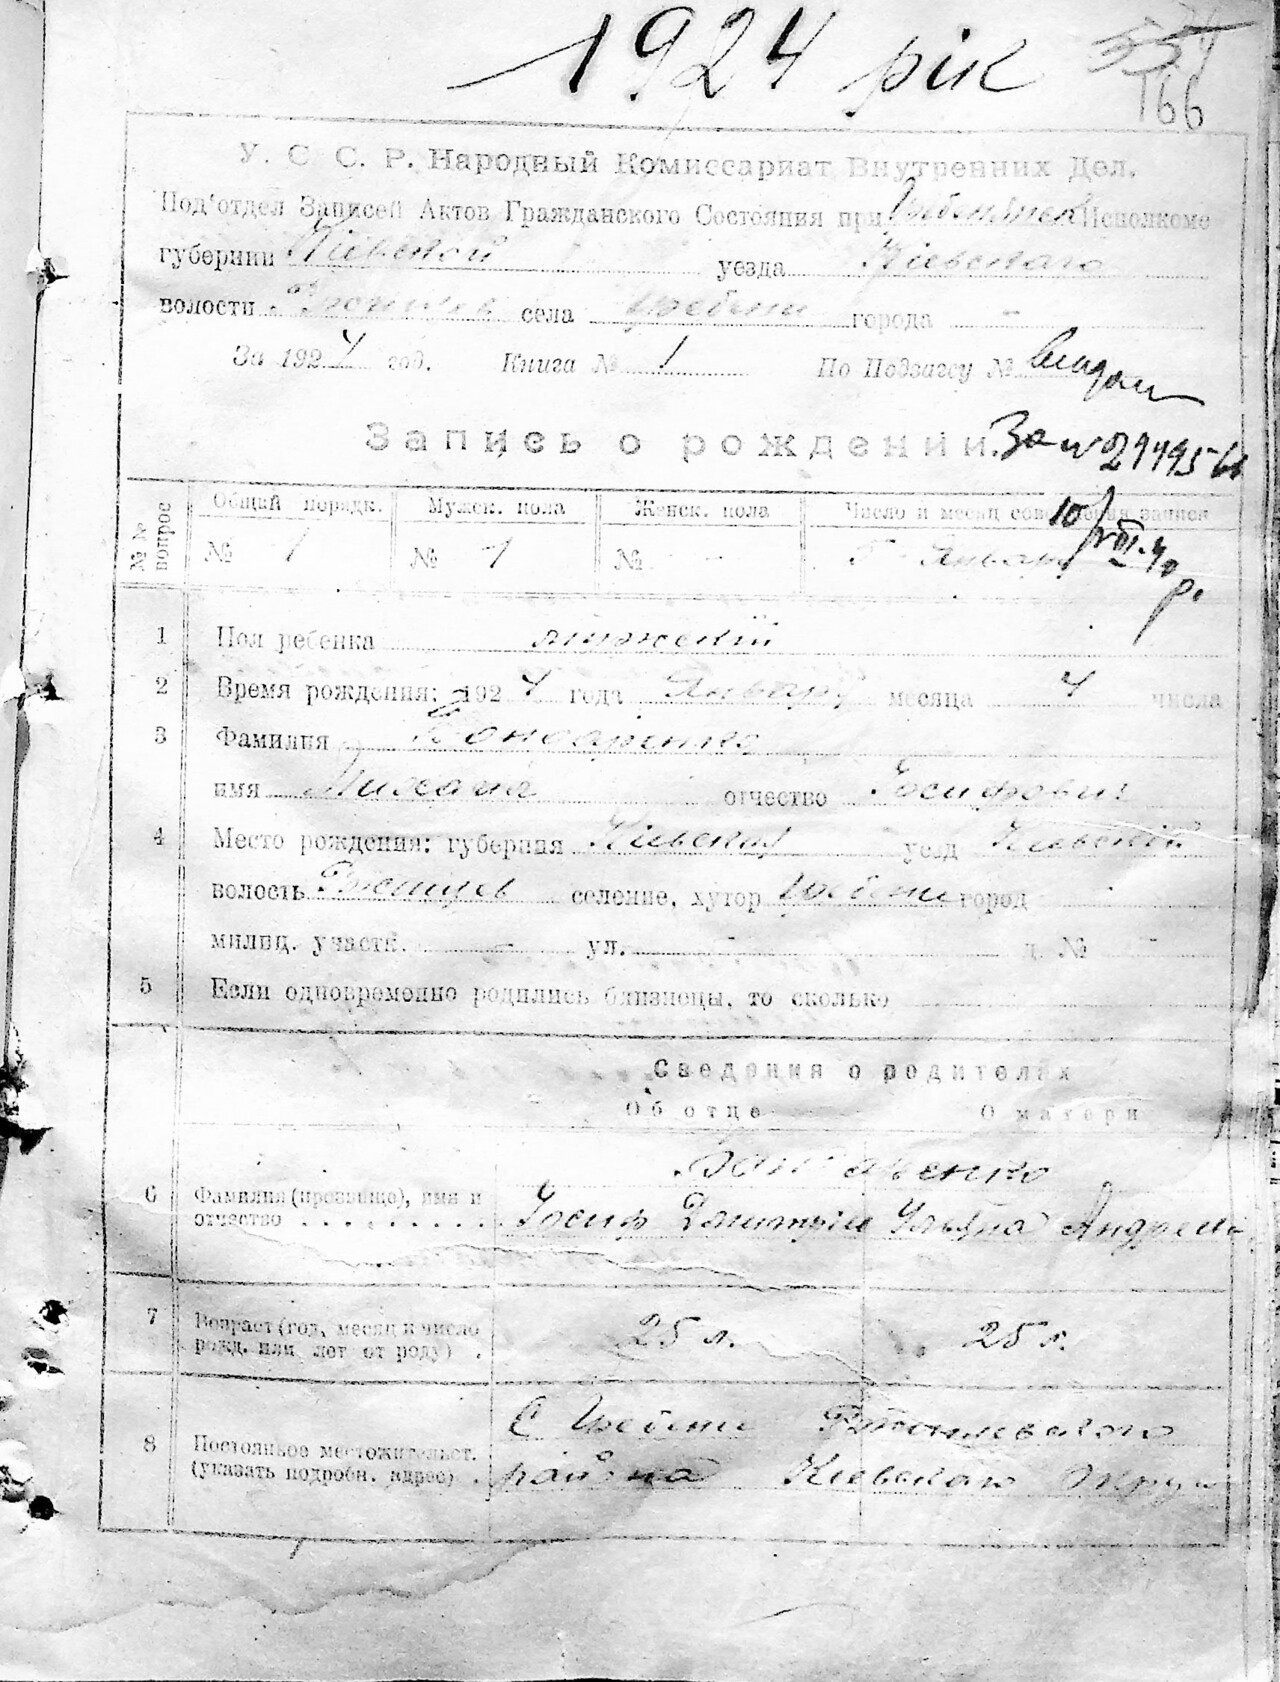 1924 рік
166
У. С. С. Р. Народный Комиссариат Внутренних Дел.
Под'отдел Записей Актов Гражданского Состояния при Исполкоме
губернии Кіевской уезда Кіевскаго
волости села Гребени города -
За 1924 год. Книга № 1 По Подзагсу №
Запись о рождении.
№№ вопрос Общий порядк. Мужск. пола Женск. пола Число и месяц совершения записи
№ 1 № 1 № - 5 Января
10/VIII-40 р.
1 Пол ребенка мужскій
2 Время рождения: 1924 года Января месяца 4 числа
3 Фамилия Бондаренко
имя Михаил отчество Іосифович
4 Место рождения: губерния Кіевская уезд Кіевскій
волость Ржищев селение, хутор Гребени город
милиц. участк. - ул. - д. № -
5 Если одновременно родились близнецы, то сколько
Сведения о родителях
Об отце О матери
Бондаренко
6 Фамилия (прозвище), имя и
отчество Іосиф Ульяна Андреев.
7 Возраст (год, месяц и число
рожд. или лет от роду) . 25 л. 25 л.
С Гребени Ржищевскаго
8 Постоянное местожительст.
(указать подробн. адрес) . района Кіевскаго Округа